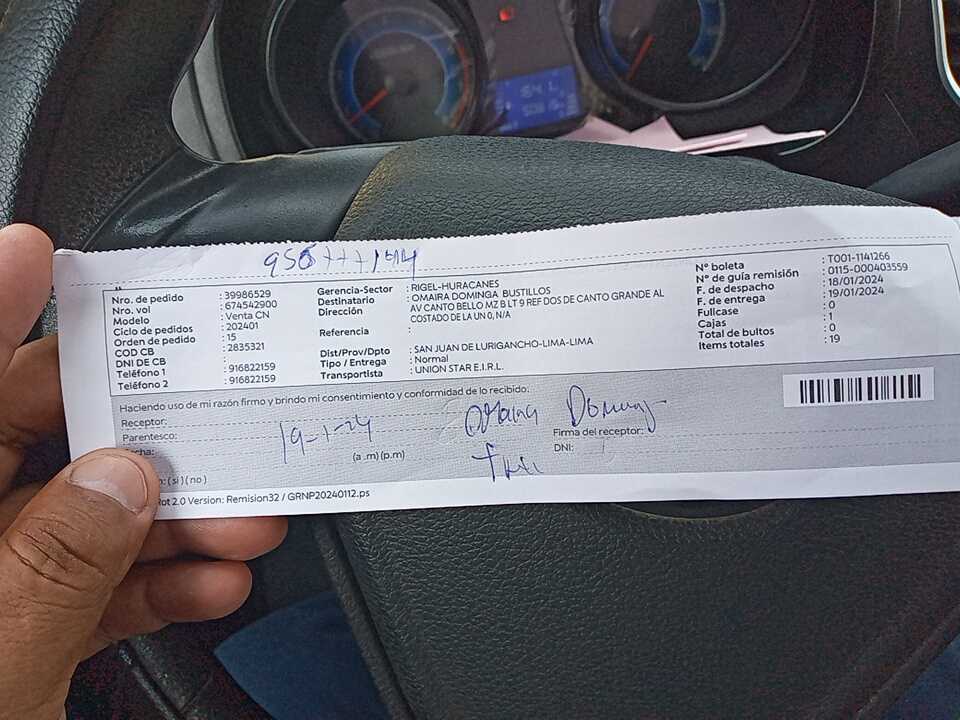 Nro. de pedido : 39986529
Nro. vol : 674542900
Modelo : Venta CN
Ciclo de pedidos : 202401
Orden de pedido : 15
COD CB : 2835321
DNI DE CB :
Teléfono 1 : 916822159
Teléfono 2 : 916822159
Gerencia-Sector : RIGEL-HURACANES
Destinatario : OMAIRA DOMINGA BUSTILLOS
Dirección : AV CANTO BELLO MZ B LT 9 REF DOS DE CANTO GRANDE AL
COSTADO DE LA UN 0, N/A
Referencia :
Dist/Prov/Dpto : SAN JUAN DE LURIGANCHO-LIMA-LIMA
Tipo / Entrega : Normal
Transportista : UNION STAR E.I.R.L.
N° boleta : T001-1141266
N° de guía remisión : 0115-000403559
F. de despacho : 18/01/2024
F. de entrega : 19/01/2024
Fullcase : 0
Cajas : 1
Total de bultos : 0
Items totales : 19
Haciendo uso de mi razón firmo y brindo mi consentimiento y conformidad de lo recibido.
Receptor:
Parentesco:
19-1-24
(a.m) (p.m)
Firma del receptor:
DNI:
( si ) ( no )
Rot 2.0 Version: Remision32 / GRNP20240112.ps